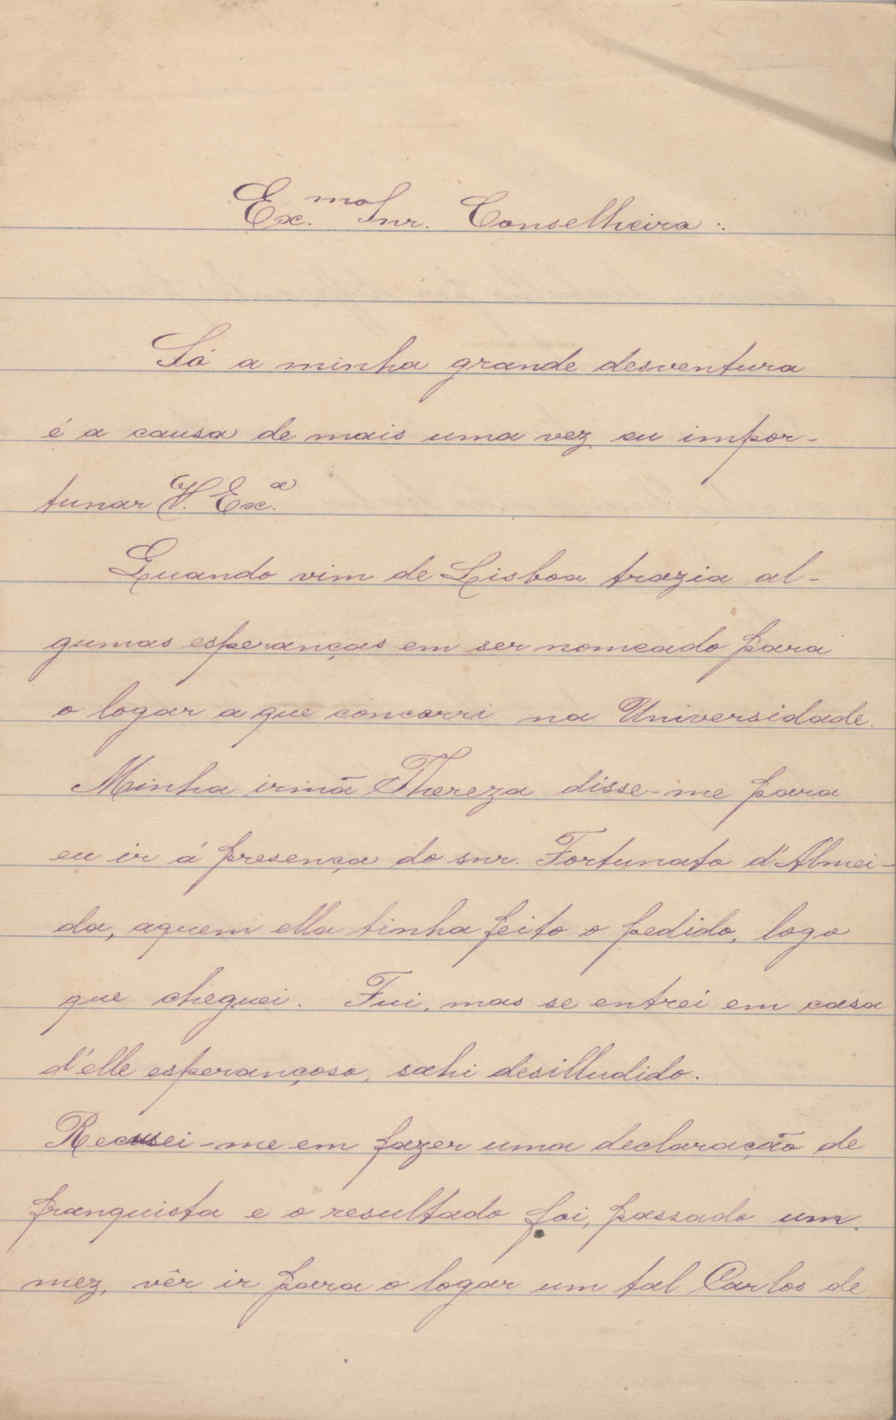 Ex.mo Snr. Conselheiro:
Só a minha grande desventura
é a causa de mais uma vez eu impor-
tunar V. Ex.a
Quando vim de Lisboa trazia al-
gumas esperanças em ser nomeado para
o logar a que concorri na Universidade.
Minha irmã Thereza disse-me para
eu ir á presença do snr. Fortunato d'Almei-
da, aquem ella tinha feito o pedido, logo
que cheguei. Fui, mas se entrei em casa
d'elle esperançoso, sahi desilludido.
Recusei-me em fazer uma declaração de
franquista e o resultado foi, passado um
mez, vêr ir para o logar um tal Carlos de